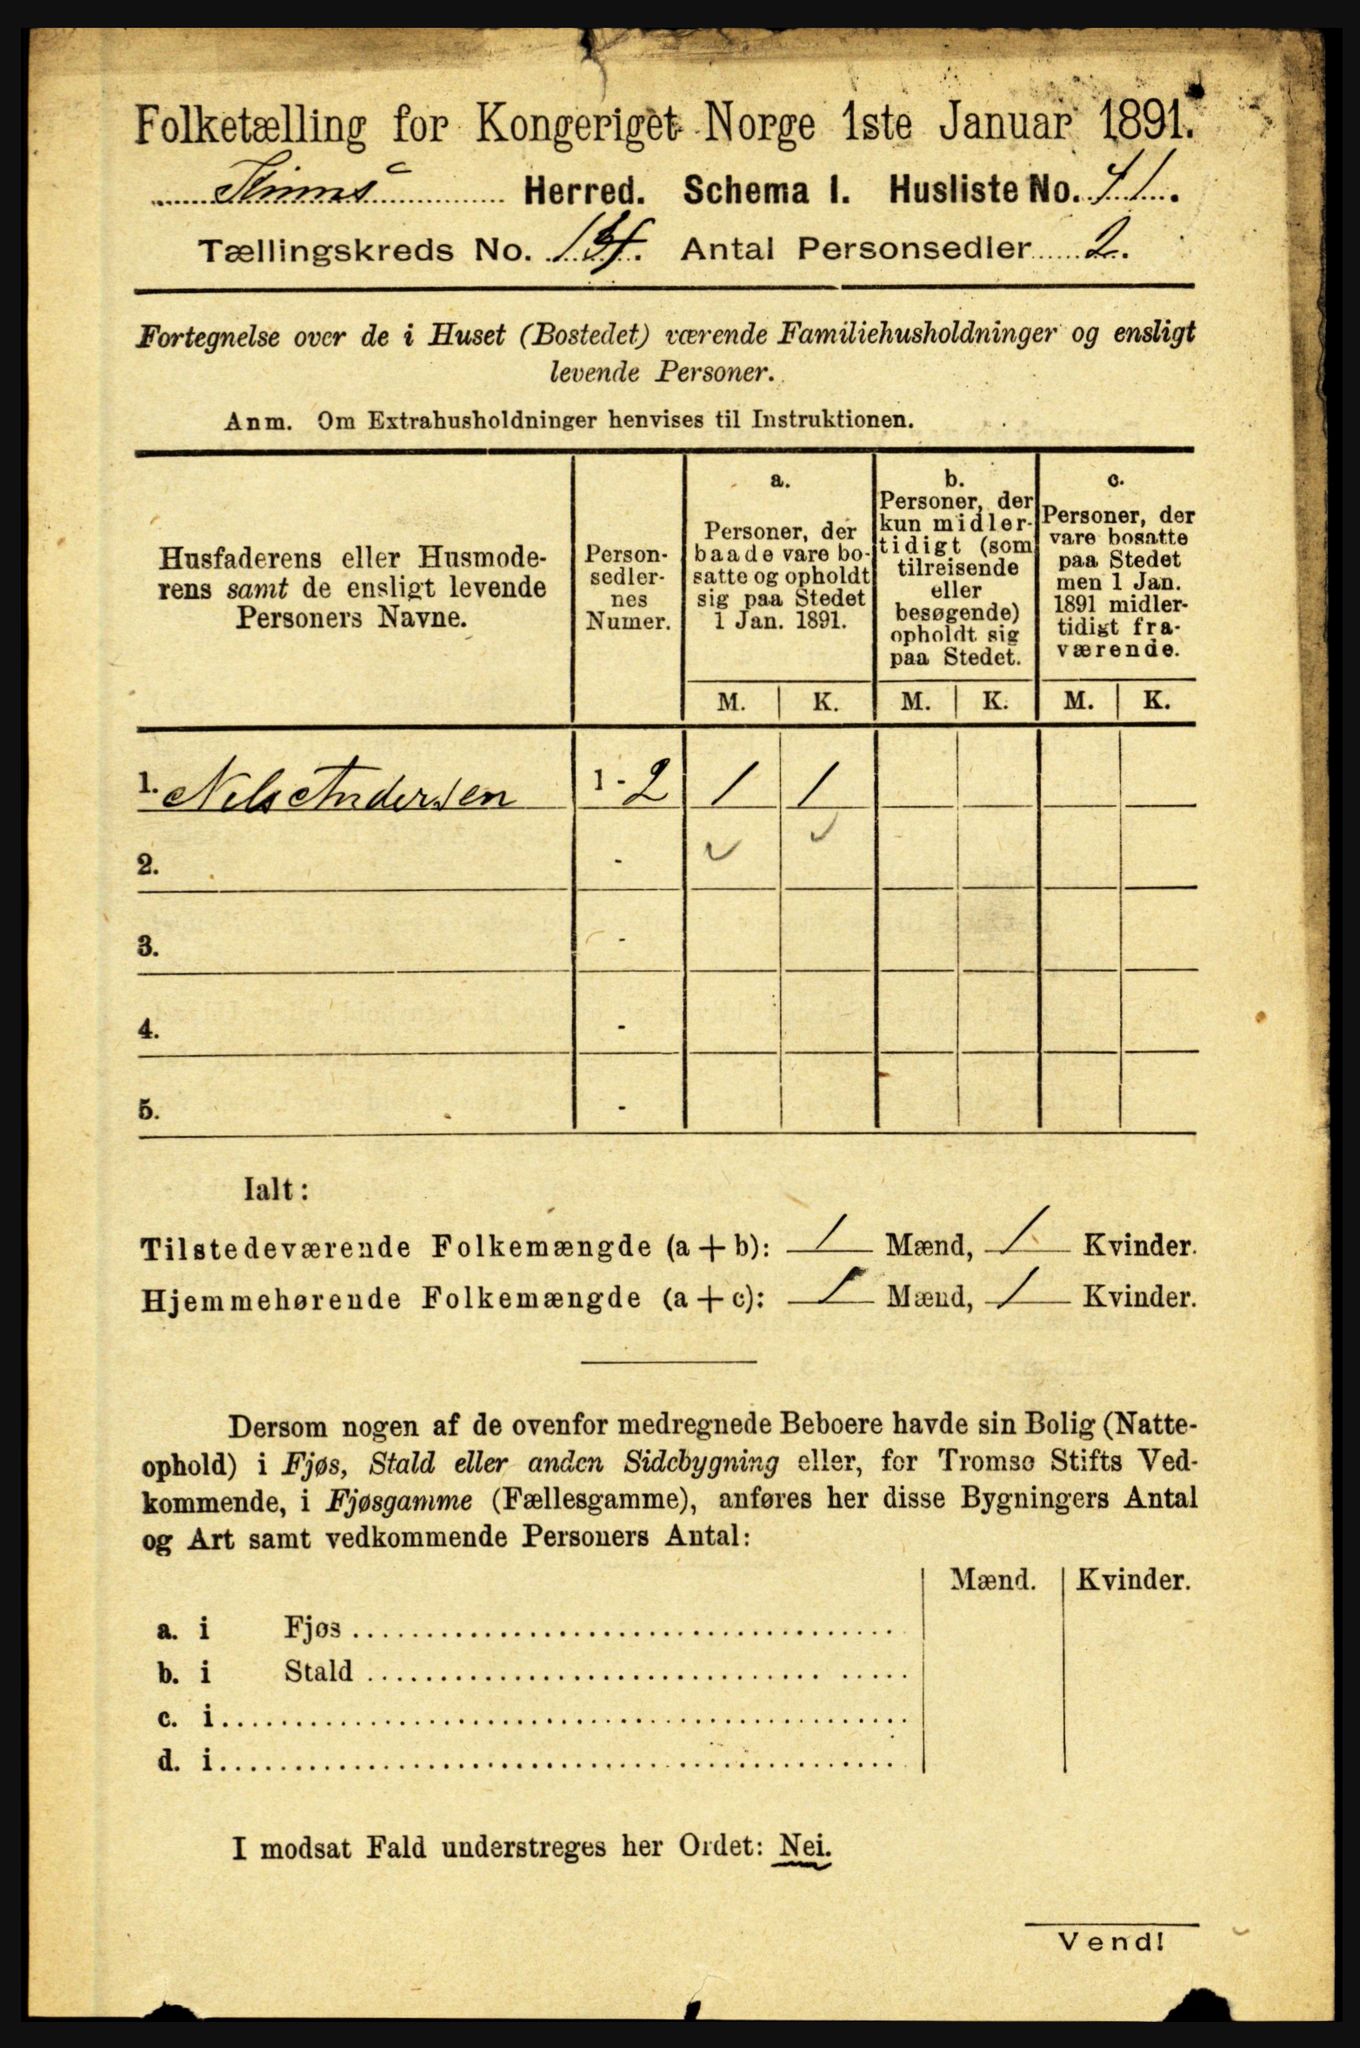 Folketælling for Kongeriget Norge 1ste Januar 1891.
Kinns Herred. Schema I. Husliste No. 41.
Tællingskreds No. Antal Personsedler 2.
Fortegnelse over de i Huset (Bostedet) værende Familiehusholdninger og ensligt
levende Personer.
Anm. Om Extrahusholdninger henvises til Instruktionen.
Husfaderens eller Husmode-
rens samt de ensligt levende
Personers Navne.
Person-
sedler-
nes
Numer.
a.
Personer, der
baade vare bo-
satte og opholdt
sig paa Stedet
1 Jan. 1891.
b.
Personer, der
kun midler-
tidigt (som
tilreisende
eller
besøgende)
opholdt sig
paa Stedet.
c.
Personer, der
vare bosatte
paa Stedet
men 1 Jan.
1891 midler-
tidigt fra-
værende.
M. K. M. K. M. K.
1. Nils Andersen 1 - 2 1 1
2. -
3. -
4. -
5. -
Ialt:
Tilstedeværende Folkemængde (a + b): 1 Mænd, 1 Kvinder.
Hjemmehørende Folkemængde (a + c): 1 Mænd, 1 Kvinder.
Dersom nogen af de ovenfor medregnede Beboere havde sin Bolig (Natte-
ophold) i Fjøs, Stald eller anden Sidebygning eller, for Tromsø Stifts Ved-
kommende, i Fjøsgamme (Fællesgamme), anføres her disse Bygningers Antal
og Art samt vedkommende Personers Antal:
Mænd. Kvinder.
a. i Fjøs
b. i Stald
c. i
d. i
I modsat Fald understreges her Ordet: Nei.
Vend!